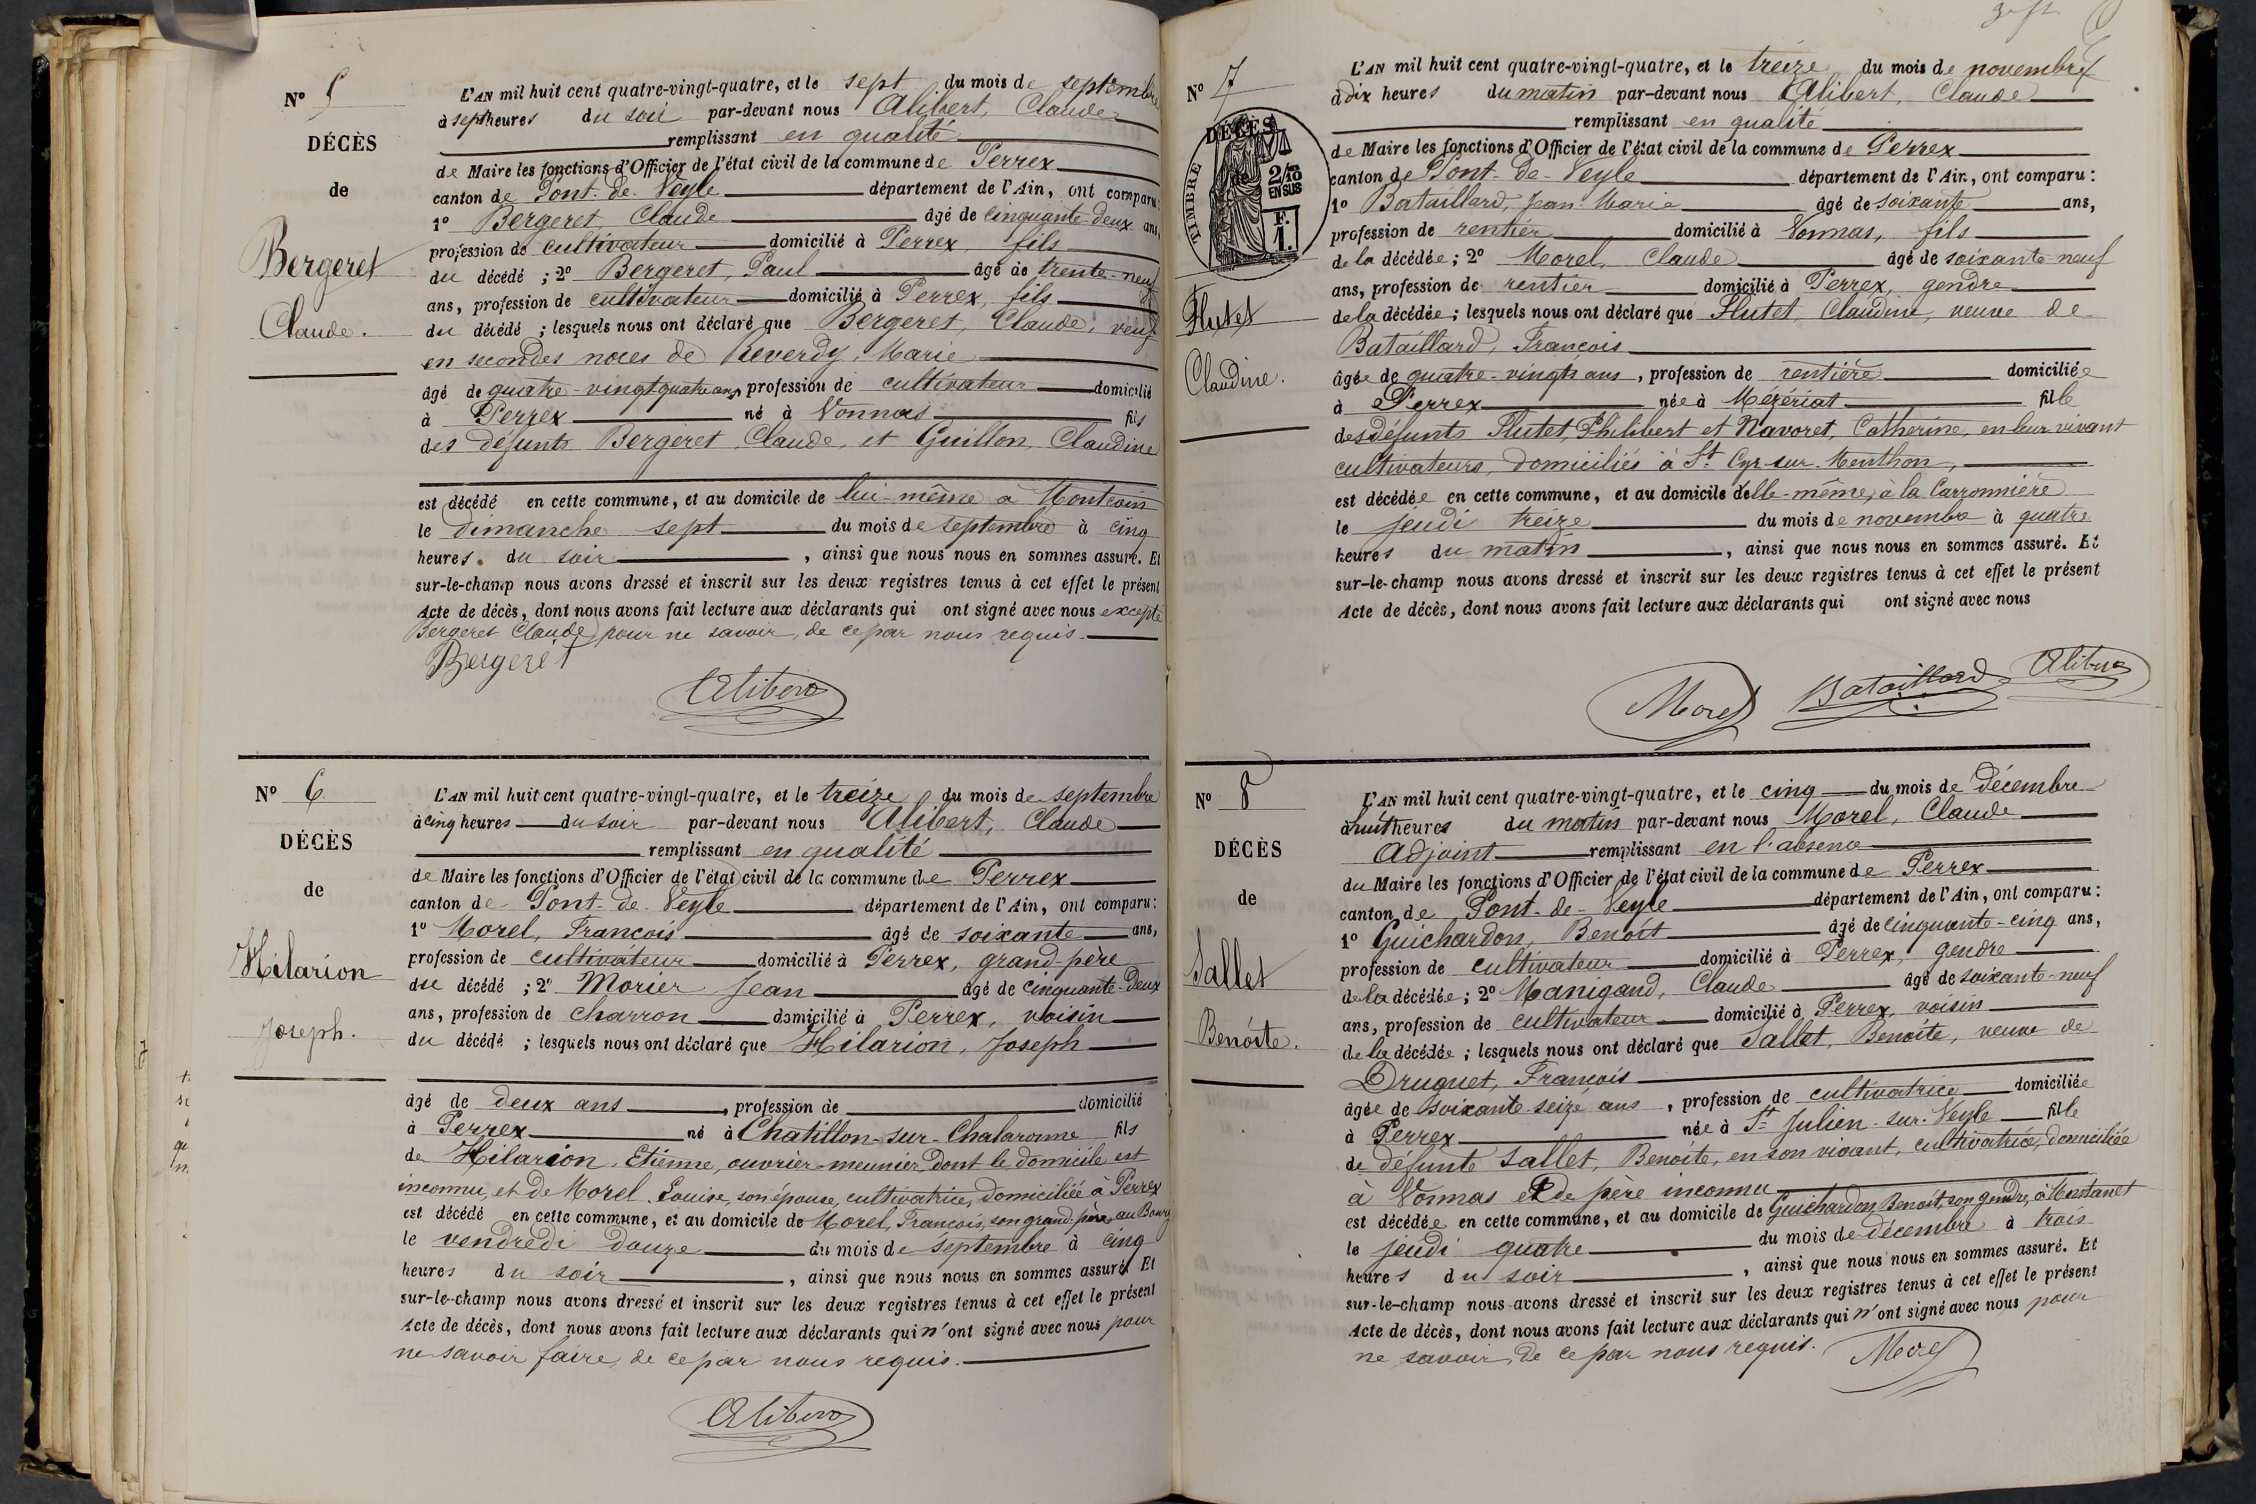 Nº 5
DÉCÈS
de
Bergeret
Claude.
L'AN mil huit cent quatre-vingt-quatre, et le sept du mois de septembre
à sept heures du soir par-devant nous Alibert, Claude
remplissant en qualité
de Maire les fonctions d'Officier de l'état civil de la commune de Perrex
canton de Pont-de-Veyle département de l'Ain, ont comparu:
1º Bergeret, Claude âgé de cinquante-deux ans,
profession de cultivateur domicilié à Perrex, fils
du décédé ; 2º Bergeret, Paul âgé de trente-neuf
ans, profession de cultivateur domicilié à Perrex, fils
du décédé ; lesquels nous ont déclaré que Bergeret, Claude, veuf
en secondes noces de Reverdy, Marie
âgé de quatre-vingt quatre ans, profession de cultivateur domicilié
à Perrex né à Vonnas fils
des défunts Bergeret, Claude, et Guillon, Claudine
est décédé en cette commune, et au domicile de lui-même à Montcoin
le dimanche sept du mois de septembre à cinq
heures du soir, ainsi que nous nous en sommes assuré. Et
sur-le-champ nous avons dressé et inscrit sur les deux registres tenus à cet effet le présent
Acte de décès, dont nous avons fait lecture aux déclarants qui ont signé avec nous excepté
Bergeret Claude, pour ne savoir, de ce par nous requis.
Bergeret
Alibert
Nº 6
DÉCÈS
de
Hilarion
Joseph.
L'AN mil huit cent quatre-vingt-quatre, et le treize du mois de septembre
à cinq heures du soir par-devant nous Alibert, Claude
remplissant en qualité
de Maire les fonctions d'Officier de l'état civil de la commune de Perrex
canton de Pont-de-Veyle département de l'Ain, ont comparu:
1º Morel, François âgé de soixante ans,
profession de cultivateur domicilié à Perrex, grand-père
du décédé ; 2º Morier Jean âgé de cinquante-deux
ans, profession de charron domicilié à Perrex, voisin
du décédé ; lesquels nous ont déclaré que Hilarion, Joseph
âgé de deux ans, profession de domicilié
à Perrex né à Chatillon-sur-Chalaronne fils
de Hilarion, Etienne, ouvrier-meunier dont le domicile est
inconnu, et de Morel Louise, son épouse, cultivatrice, domiciliée à Perrex
est décédé en cette commune, et au domicile de Morel, François, son grand-père, au Bourg
le vendredi douze du mois de septembre à cinq
heures du soir, ainsi que nous nous en sommes assuré. Et
sur-le-champ nous avons dressé et inscrit sur les deux registres tenus à cet effet le présent
Acte de décès, dont nous avons fait lecture aux déclarants qui n'ont signé avec nous pour
ne savoir faire, de ce par nous requis.
Alibert
Nº 7
DÉCÈS
de
TIMBRE
2/10
EN SUS
F.
1.
Flutet
Claudine.
L'AN mil huit cent quatre-vingt-quatre, et le treize du mois de novembre
à dix heures du matin par-devant nous Alibert, Claude
remplissant en qualité
de Maire les fonctions d'Officier de l'état civil de la commune de Perrex
canton de Pont-de-Veyle département de l'Ain, ont comparu:
1º Bataillard, Jean-Marie âgé de soixante ans,
profession de rentier domicilié à Vonnas, fils
de la décédée ; 2º Morel, Claude âgé de soixante-neuf
ans, profession de rentier domicilié à Perrex, gendre
de la décédée ; lesquels nous ont déclaré que Flutet, Claudine, veuve de
Bataillard, François
âgée de quatre-vingts ans, profession de rentière domiciliée
à Perrex née à Mézériat fille
des défunts Flutet, Philibert et Navoret, Catherine, en leur vivant
cultivateurs, domiciliés à St Cyr-sur-Menthon,
est décédée en cette commune, et au domicile d'elle-même, à la Carronnière
le jeudi treize du mois de novembre à quatre
heures du matin, ainsi que nous nous en sommes assuré. Et
sur-le-champ nous avons dressé et inscrit sur les deux registres tenus à cet effet le présent
Acte de décès, dont nous avons fait lecture aux déclarants qui ont signé avec nous
Morel Bataillard Alibert
Nº 8
DÉCÈS
de
Sallet
Benoite.
L'AN mil huit cent quatre-vingt-quatre, et le cinq du mois de décembre
à huit heures du matin par-devant nous Morel, Claude
Adjoint remplissant en l'absence
du Maire les fonctions d'Officier de l'état civil de la commune de Perrex
canton de Pont-de-Veyle département de l'Ain, ont comparu:
1º Guichardon, Benoit âgé de cinquante-cinq ans,
profession de cultivateur domicilié à Perrex, gendre
de la décédée ; 2º Manigand, Claude âgé de soixante-neuf
ans, profession de cultivateur domicilié à Perrex, voisin
de la décédée ; lesquels nous ont déclaré que Sallet, Benoite, veuve de
Druguet, François
âgée de soixante-seize ans, profession de cultivatrice domiciliée
à Perrex née à St Julien-sur-Veyle fille
de défunte Sallet, Benoite, en son vivant, cultivatrice, domiciliée
à Vonnas et de père inconnu
est décédée en cette commune, et au domicile de Guichardon Benoit, son gendre, à Montanet
le jeudi quatre du mois de décembre à trois
heures du soir, ainsi que nous nous en sommes assuré. Et
sur-le-champ nous avons dressé et inscrit sur les deux registres tenus à cet effet le présent
Acte de décès, dont nous avons fait lecture aux déclarants qui n'ont signé avec nous pour
ne savoir, de ce par nous requis.
Morel